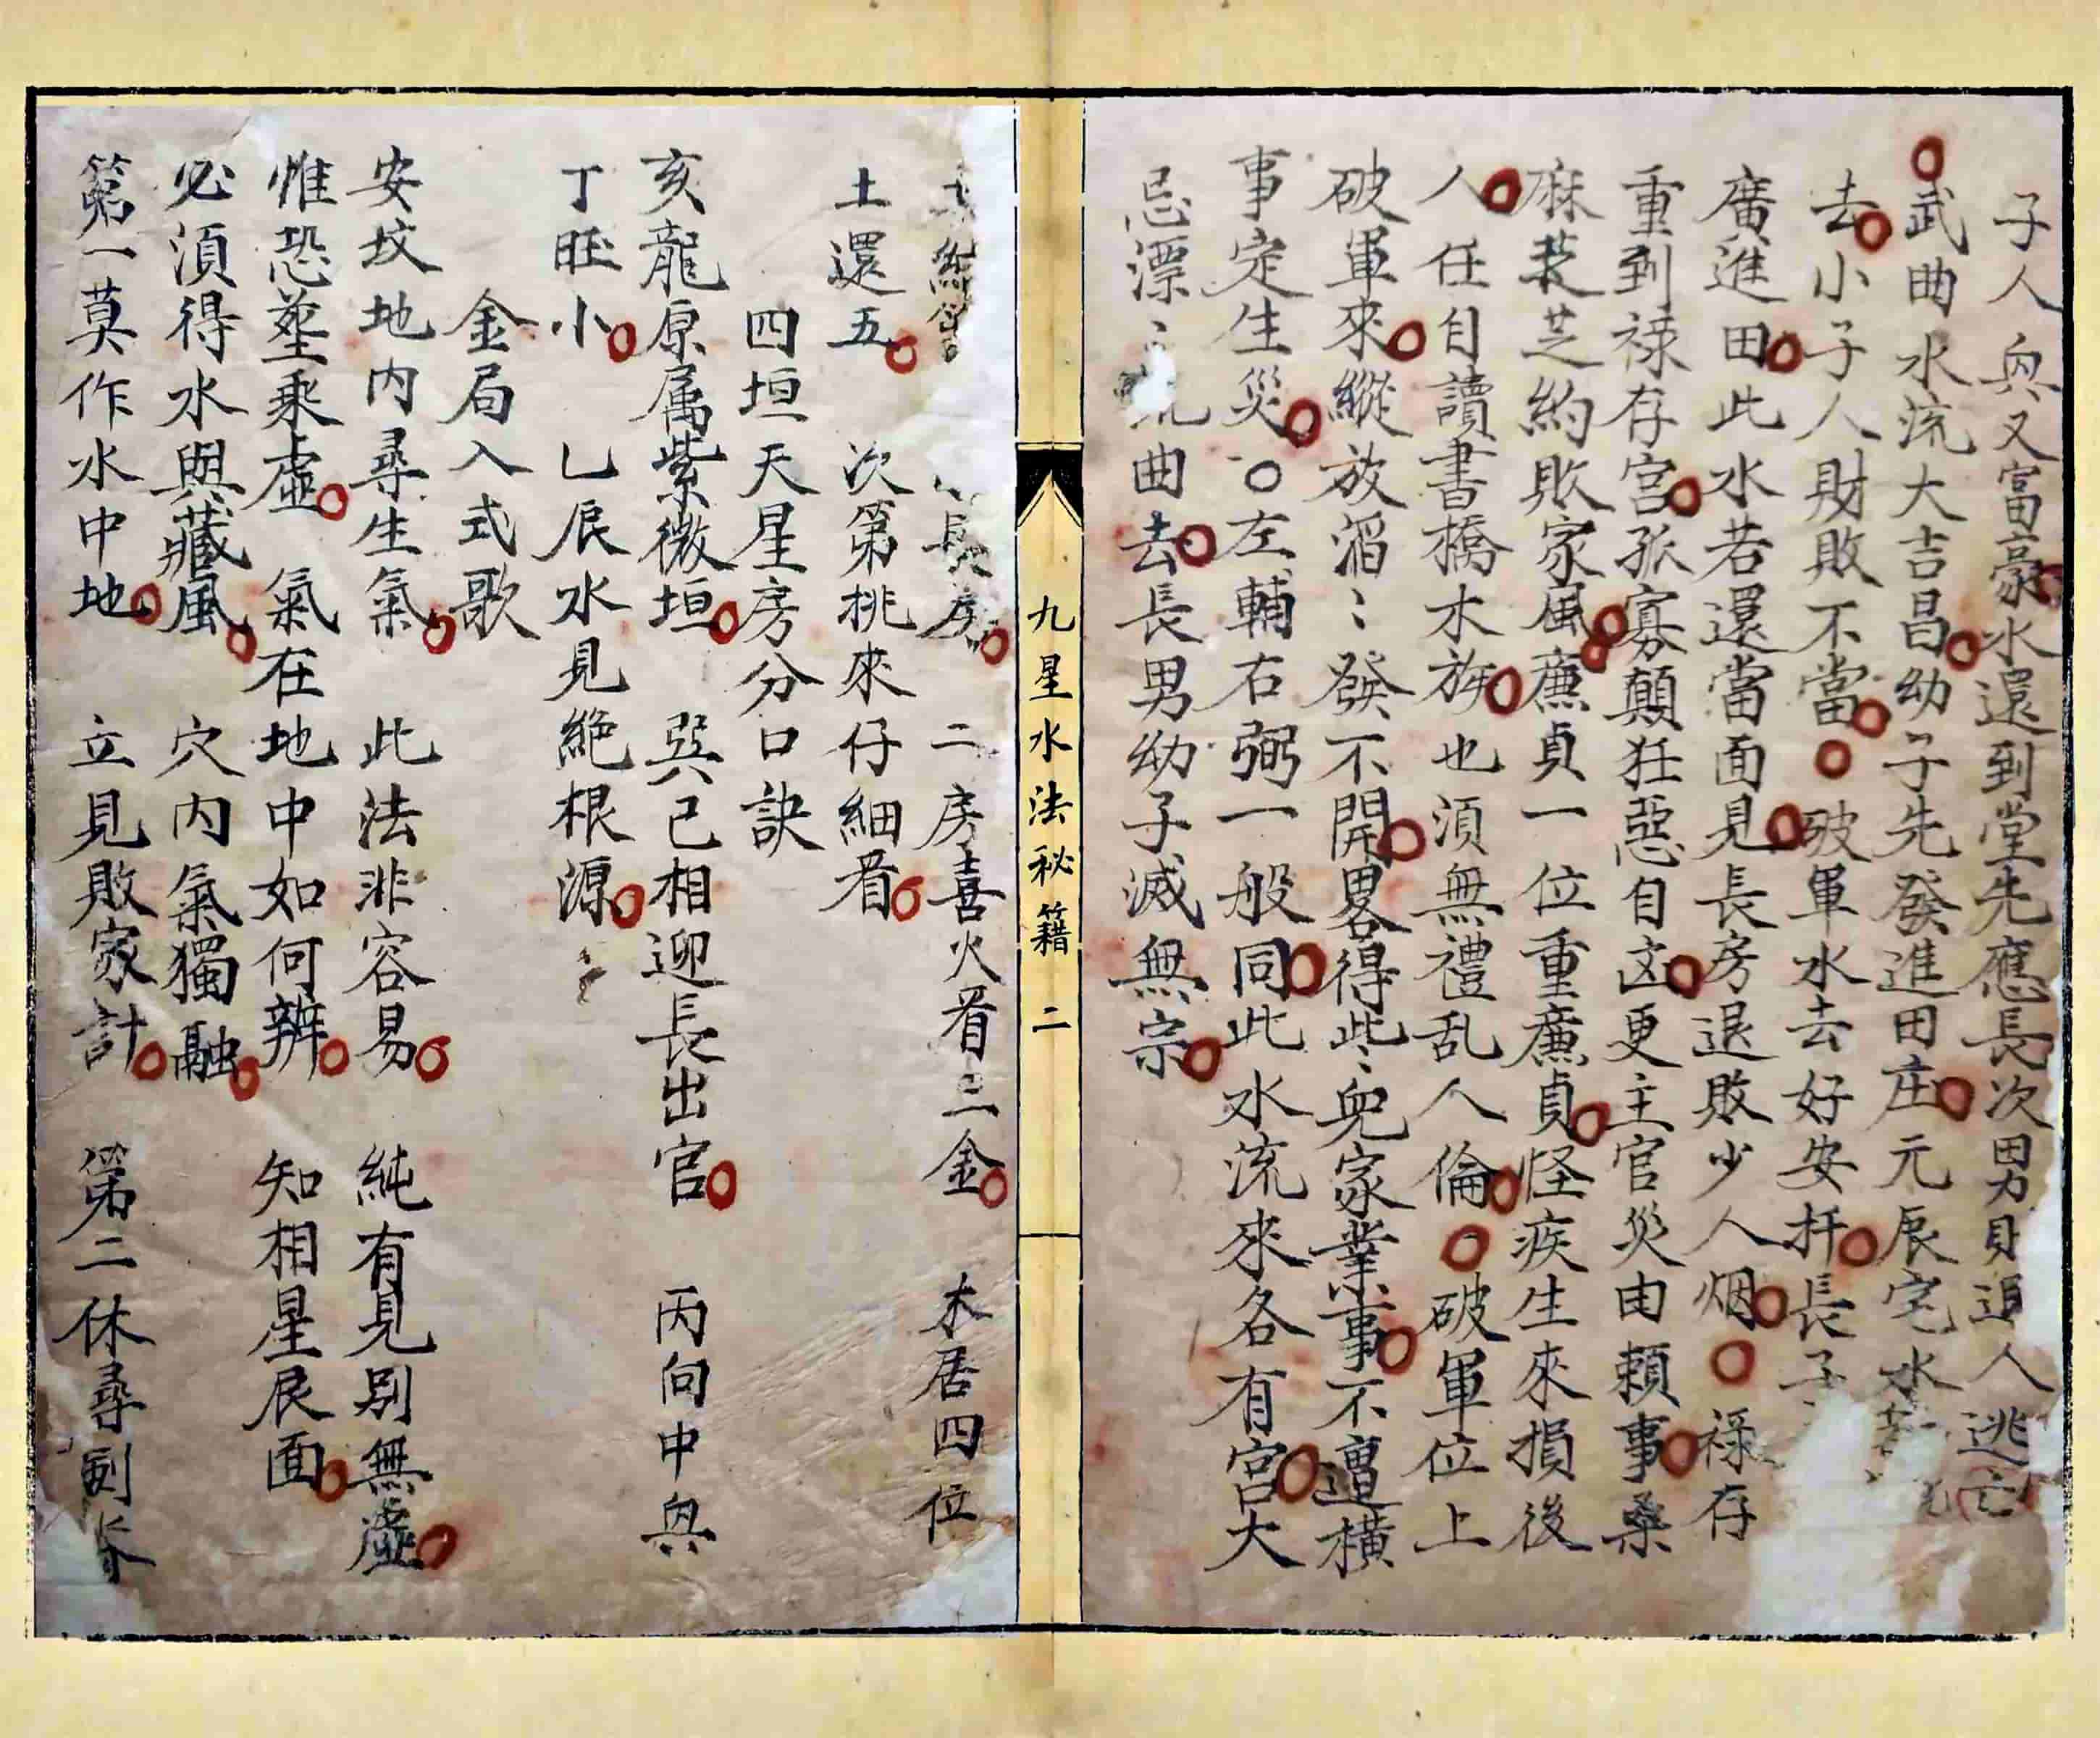 子人興又富豪水還到堂先應長次男財退人逃亡
武曲水流大吉昌幼子先發進田庄元辰宅水
去小子人財敗不當破軍水去好安扦長子
廣進田此水若還當面見長房退敗少人烟祿存
重到祿存宮孤寡顛狂惡自凶更主官災由賴事桑
麻芝約敗家風廉貞一位重廉貞怪疾生來損後
人任自讀書橋木族也須無禮乱人倫破軍位上
破軍來縱放滔〻發不開畧得此〻兒家業事不遭橫
事定生災○左輔右弼一般同此水流來各有宮大
忌漂〻流曲去長男幼子滅無宗
九星水法秘籍 二
長房 二房喜火看三金 木居四位
土還五 次第挑來仔細看
四垣天星房分口訣
亥龍原属紫微垣 巽已相迎長出官 丙向中興
丁旺小 乚辰水見絕根源
金局入式歌
安坟地内尋生氣 此法非容易 純有見别無虛
惟恐塟乘虛 氣在地中如何辨 知相星辰面
必湏得水與藏風 穴内氣獨融
第一莫作水中地 立見敗家計 第二休尋剑脊